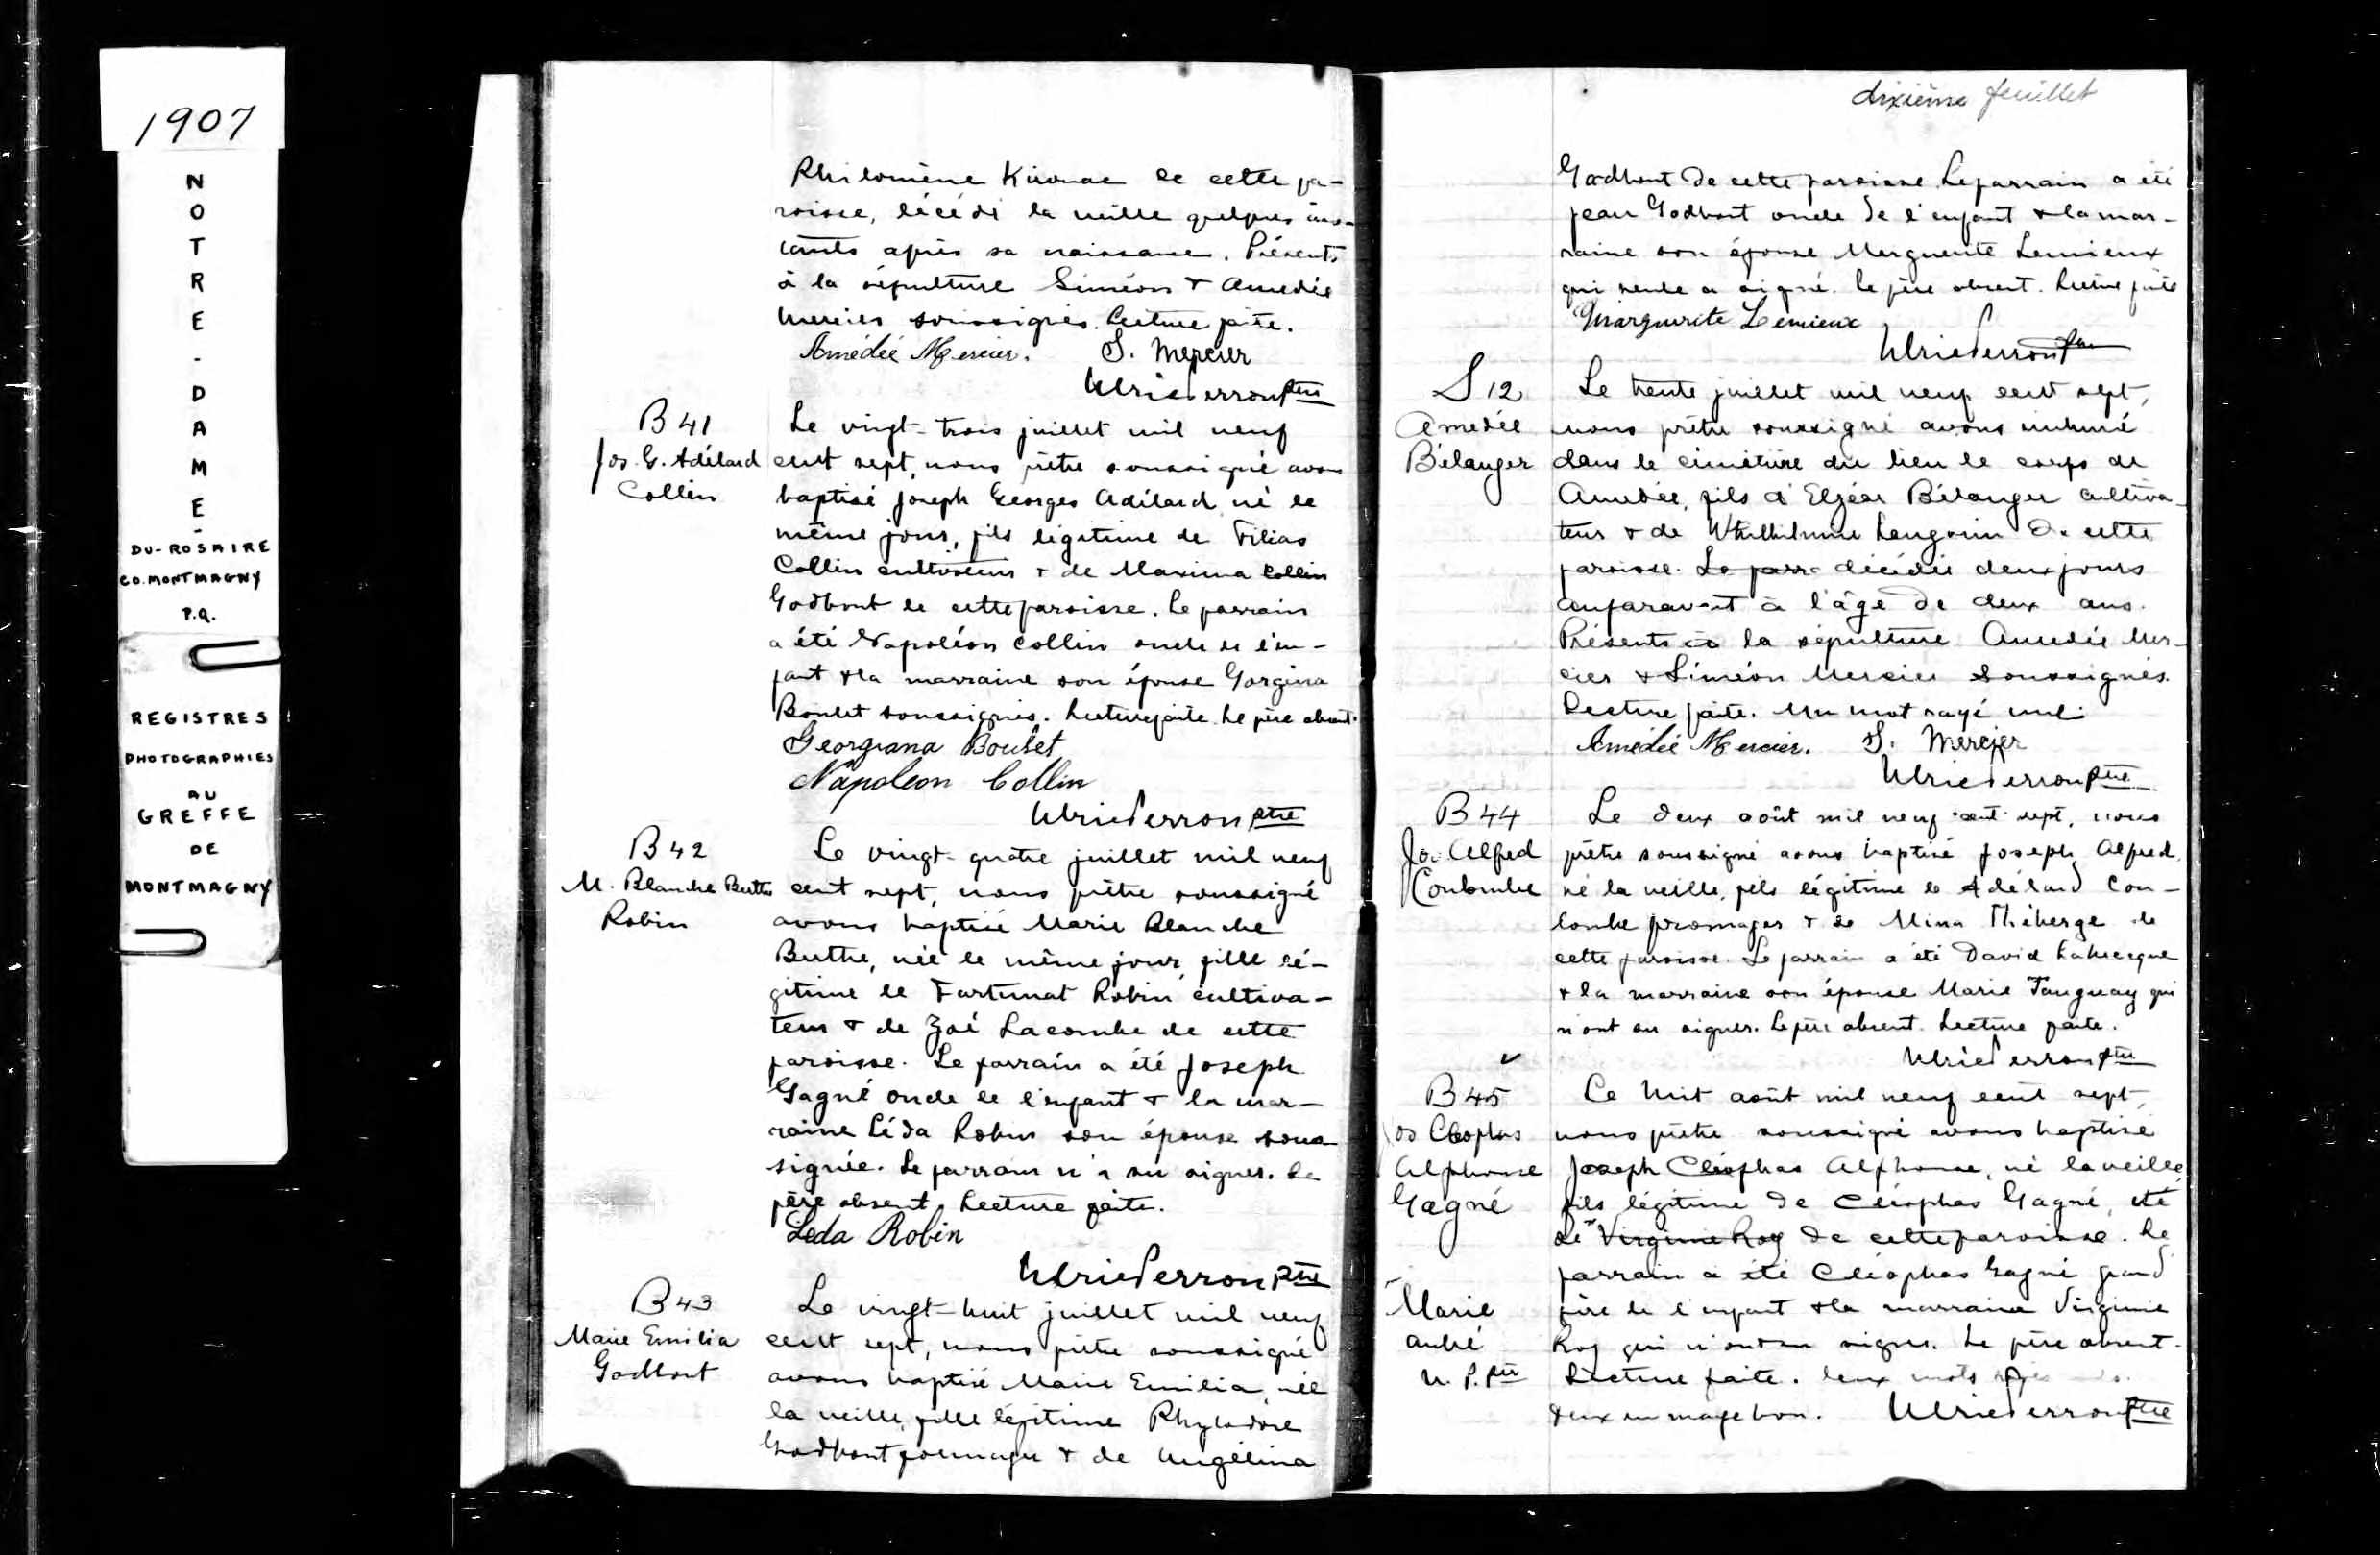 1907
NOTRE-DAME-
DU-ROSAIRE
CO. MONTMAGNY
P.Q.
REGISTRES
PHOTOGRAPHIES
AU
GREFFE
DE
MONTMAGNY
Philomène Kirouac de cette pa-
roisse, décédé la veille quelques ins-
tants après sa naissance. Présents
à la sépulture Siméon & Amedée
Mercier soussignés. Lecture faite.
Amédée Mercier. S. Mercier
Ulric Perron ptre
B 41
Jos. G. Adélard
Collin
Le vingt-trois juillet mil neuf
cent sept, nous prêtre soussigné avons
baptisé Joseph Georges Adélard né le
même jour, fils légitime de Filias
Collin cultivateur & de Maxima Collin
Godbout de cette paroisse. Le parrain
a été Napoléon Collin oncle de l'en-
fant & la marraine son épouse Gorgina
Boulet soussignés. Lecture faite. Le père absent.
Georgiana Boulet
Napoleon Collin
Ulric Perron ptre
B 42
M. Blanche Berthe
Robin
Le vingt-quatre juillet mil neuf
cent sept, nous prêtre soussigné
avons baptisé Marie Blanche
Berthe, née le même jour, fille lé-
gitime de Fortunat Robin cultiva-
teur & de Zoé Lacombe de cette
paroisse. Le parrain a été Joseph
Gagné oncle de l'enfant & la mar-
raine Léda Robin son épouse sous-
signée. Le parrain n'a su signer. Le
père absent. Lecture faite.
Leda Robin
Ulric Perron ptre
B 43
Marie Emilia
Godbout
Le vingt-huit juillet mil neuf
cent sept, nous prêtre soussigné
avons baptisé Marie Emilia, née
la veille, fille légitime Phylodore
Godbout fromager & de Angélina
dixième feuillet
Godbout de cette paroisse. Le parrain a été
Jean Godbout oncle de l'enfant & la mar-
raine son épouse Marguerite Lemieux
qui seule a signé. Le père absent. Lecture faite
Marguerite Lemieux
Ulric Perron ptre
S 12
Amedée
Bélanger
Le trente juillet mil neuf cent sept,
nous prêtre soussigné avons inhumé
dans le cimetière du lieu le corps de
Amedée, fils d'Elzéar Bélanger cultiva-
teur & de Langevin de cette
paroisse. Le parra décédé deux jours
auparavant à l'âge de deux ans.
Présents à la sépulture Amedée Mer-
cier & Siméon Mercier soussignés.
Lecture faite. Un mot rayé nul.
Amédée Mercier. S. Mercier
Ulric Perron ptre
B 44
Jos. Alfred
Coulombe
Le deux août mil neuf cent sept, nous
prêtre soussigné avons baptisé Joseph Alfred
né la veille, fils légitime de Adélard Cou-
lombe fromager & de Mina Théberge de
cette paroisse. Le parrain a été David Labrecque
& la marraine son épouse Marie Tanguay qui
n'ont su signer. Le père absent. Lecture faite.
Ulric Perron ptre
B 45
Jos Cléophas
Alphonse
Gagné
Le huit août mil neuf cent sept,
nous prêtre soussigné avons baptisé
Joseph Cléophas Alphonse, né la veille,
fils légitime de Cléophas Gagné, &
de Virginie Roy de cette paroisse. Le
parrain a été Cléophas Gagné grand
père de l'enfant & la marraine Virginie
Roy qui n'ont su signer. Le père absent.
Lecture faite. Deux mots rayés nuls.
deux en marge bon. Ulric Perron ptre
Marie
Aubé
U. P. ptre